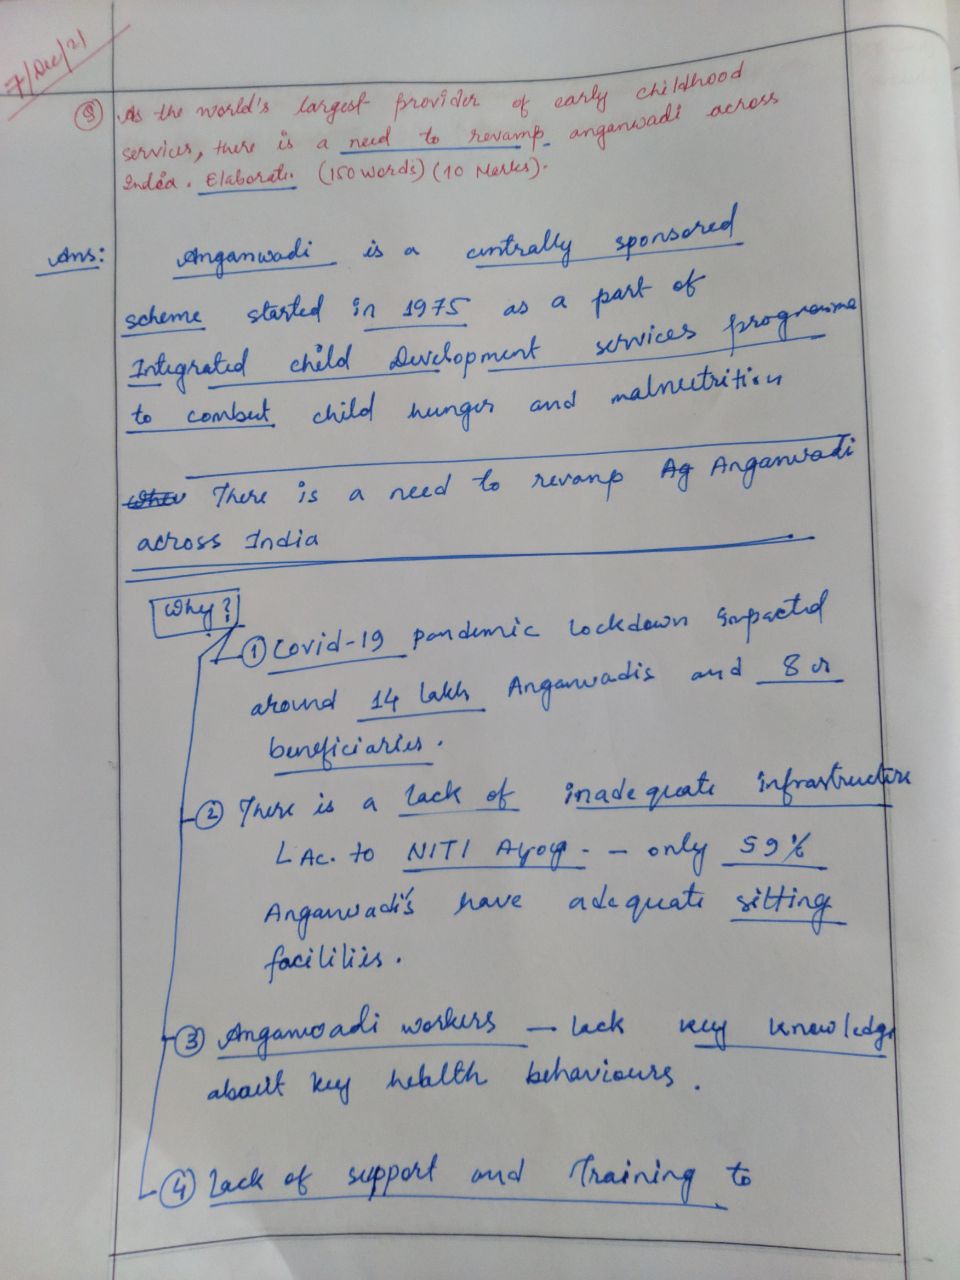 7/Dec/21
Q As the world's largest provider of early childhood
services, there is a need to revamp anganwadi across
India. Elaborate. (150 words) (10 Marks).
Ans: Anganwadi is a centrally sponsored
scheme started in 1975 as a part of
Integrated child Development services programme
to combat child hunger and malnutrition
There is a need to revamp Ag Anganwadi
across India
Why?
① Covid-19 pandemic lockdown impacted
around 14 lakh Anganwadis and 8 cr
beneficiaries.
② There is a lack of inadequate infrastructure
L Ac. to NITI Ayog - - only 59%
Anganwadis have adequate sitting
facilities.
③ Anganwadi workers - lack key knowledge
about key health behaviours.
④ Lack of support and Training to